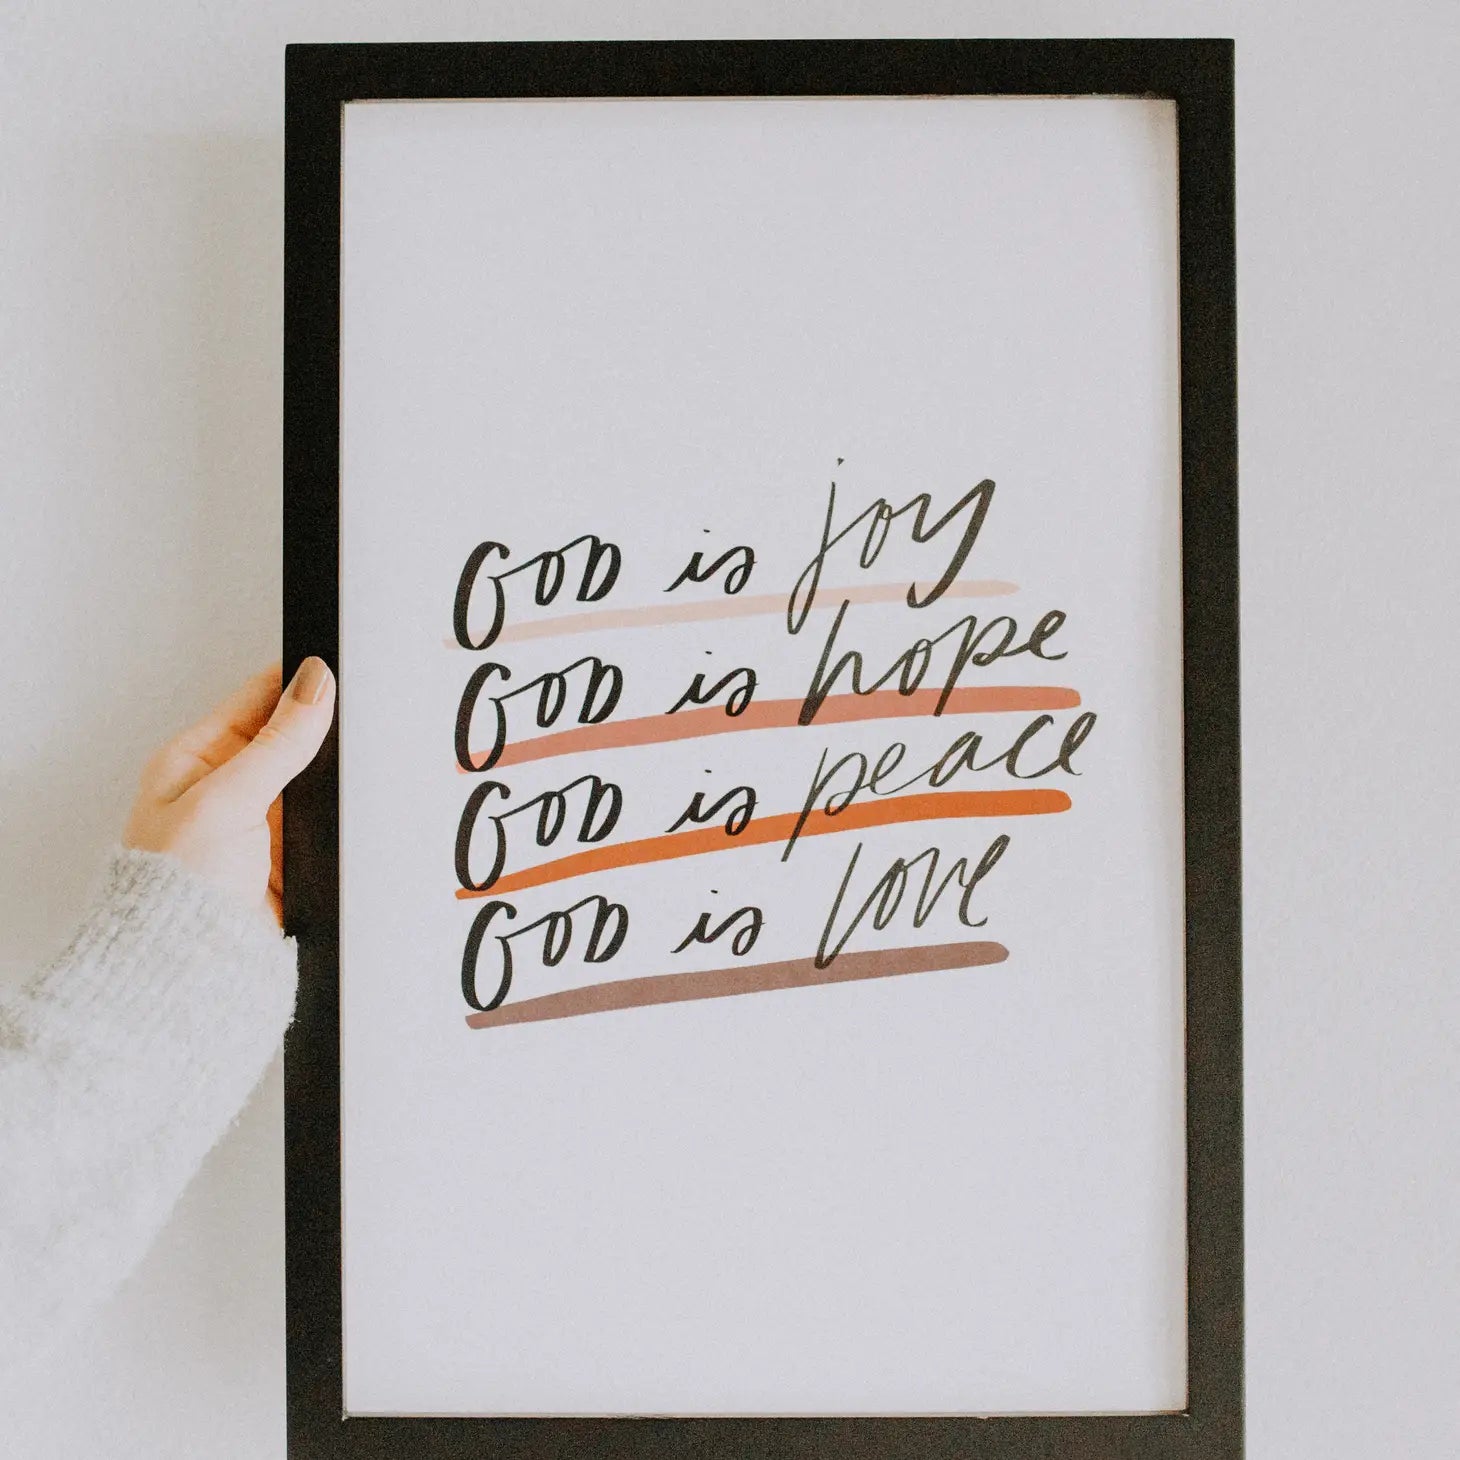 GOD is joy
GOD is hope
GOD is peace
GOD is love